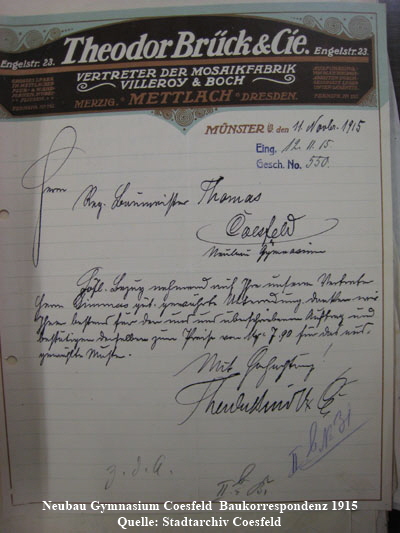 Engelstr. 23. Theodor Brück & Cie. Engelstr. 23.
VERTRETER DER MOSAIKFABRIK
VILLEROY & BOCH
MERZIG. * METTLACH * DRESDEN.
MÜNSTER i/W. den 11. Novbr. 1915
Eing. 12. 11. 15.
Gesch. No. 550.
Herrn
Reg. Baumeister Thomas
Coesfeld
Neubau Gymnasium
Höfl. Bezug nehmend auf Ihre unserem Vertreter
Herrn gewährte Unterredung, danken wir
Ihnen bestens für den uns überschriebenen Auftrag und
bestätigen denselben zum Preise von Mk. 7.90 für das
Muster.
Mit Hochachtung
z. d. A.
Neubau Gymnasium Coesfeld Baukorrespondenz 1915
Quelle: Stadtarchiv Coesfeld